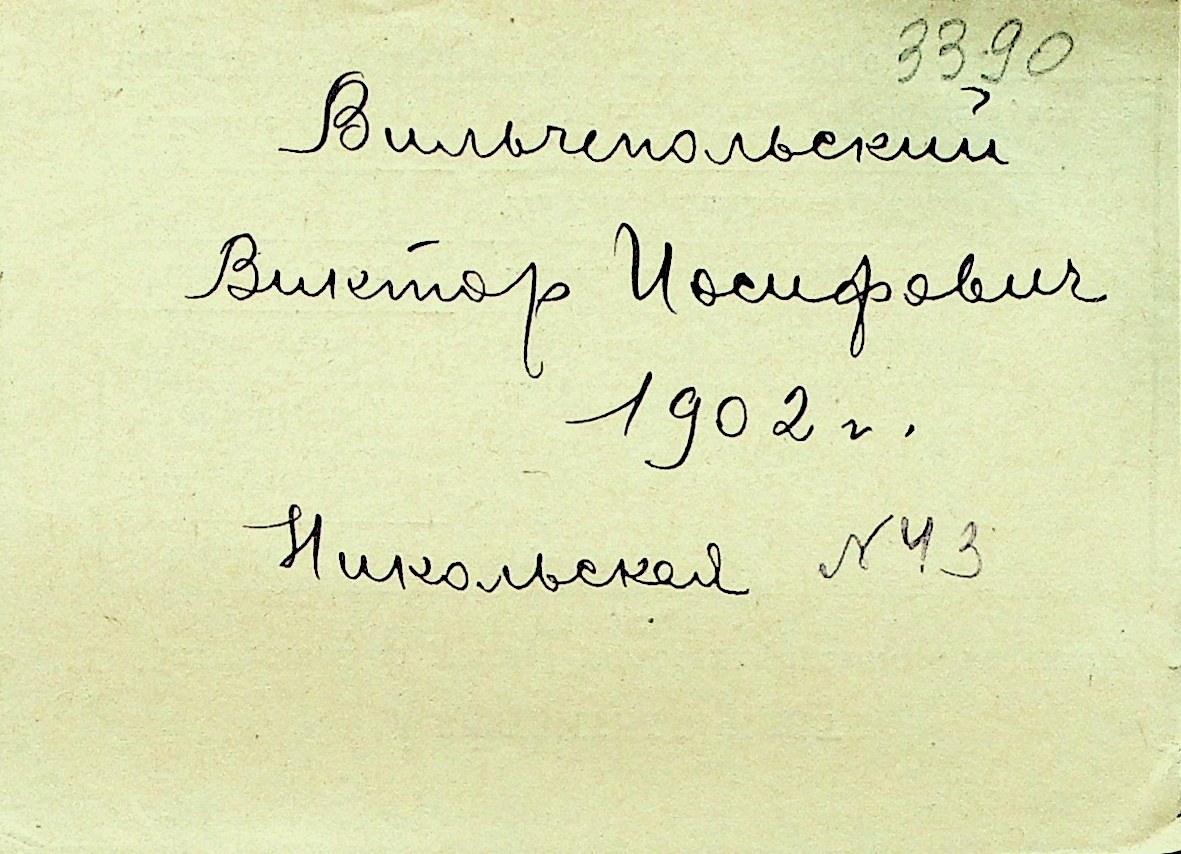 3390
Вильчепольский
Виктор Иосифович
1902 г.
Никольская № 43